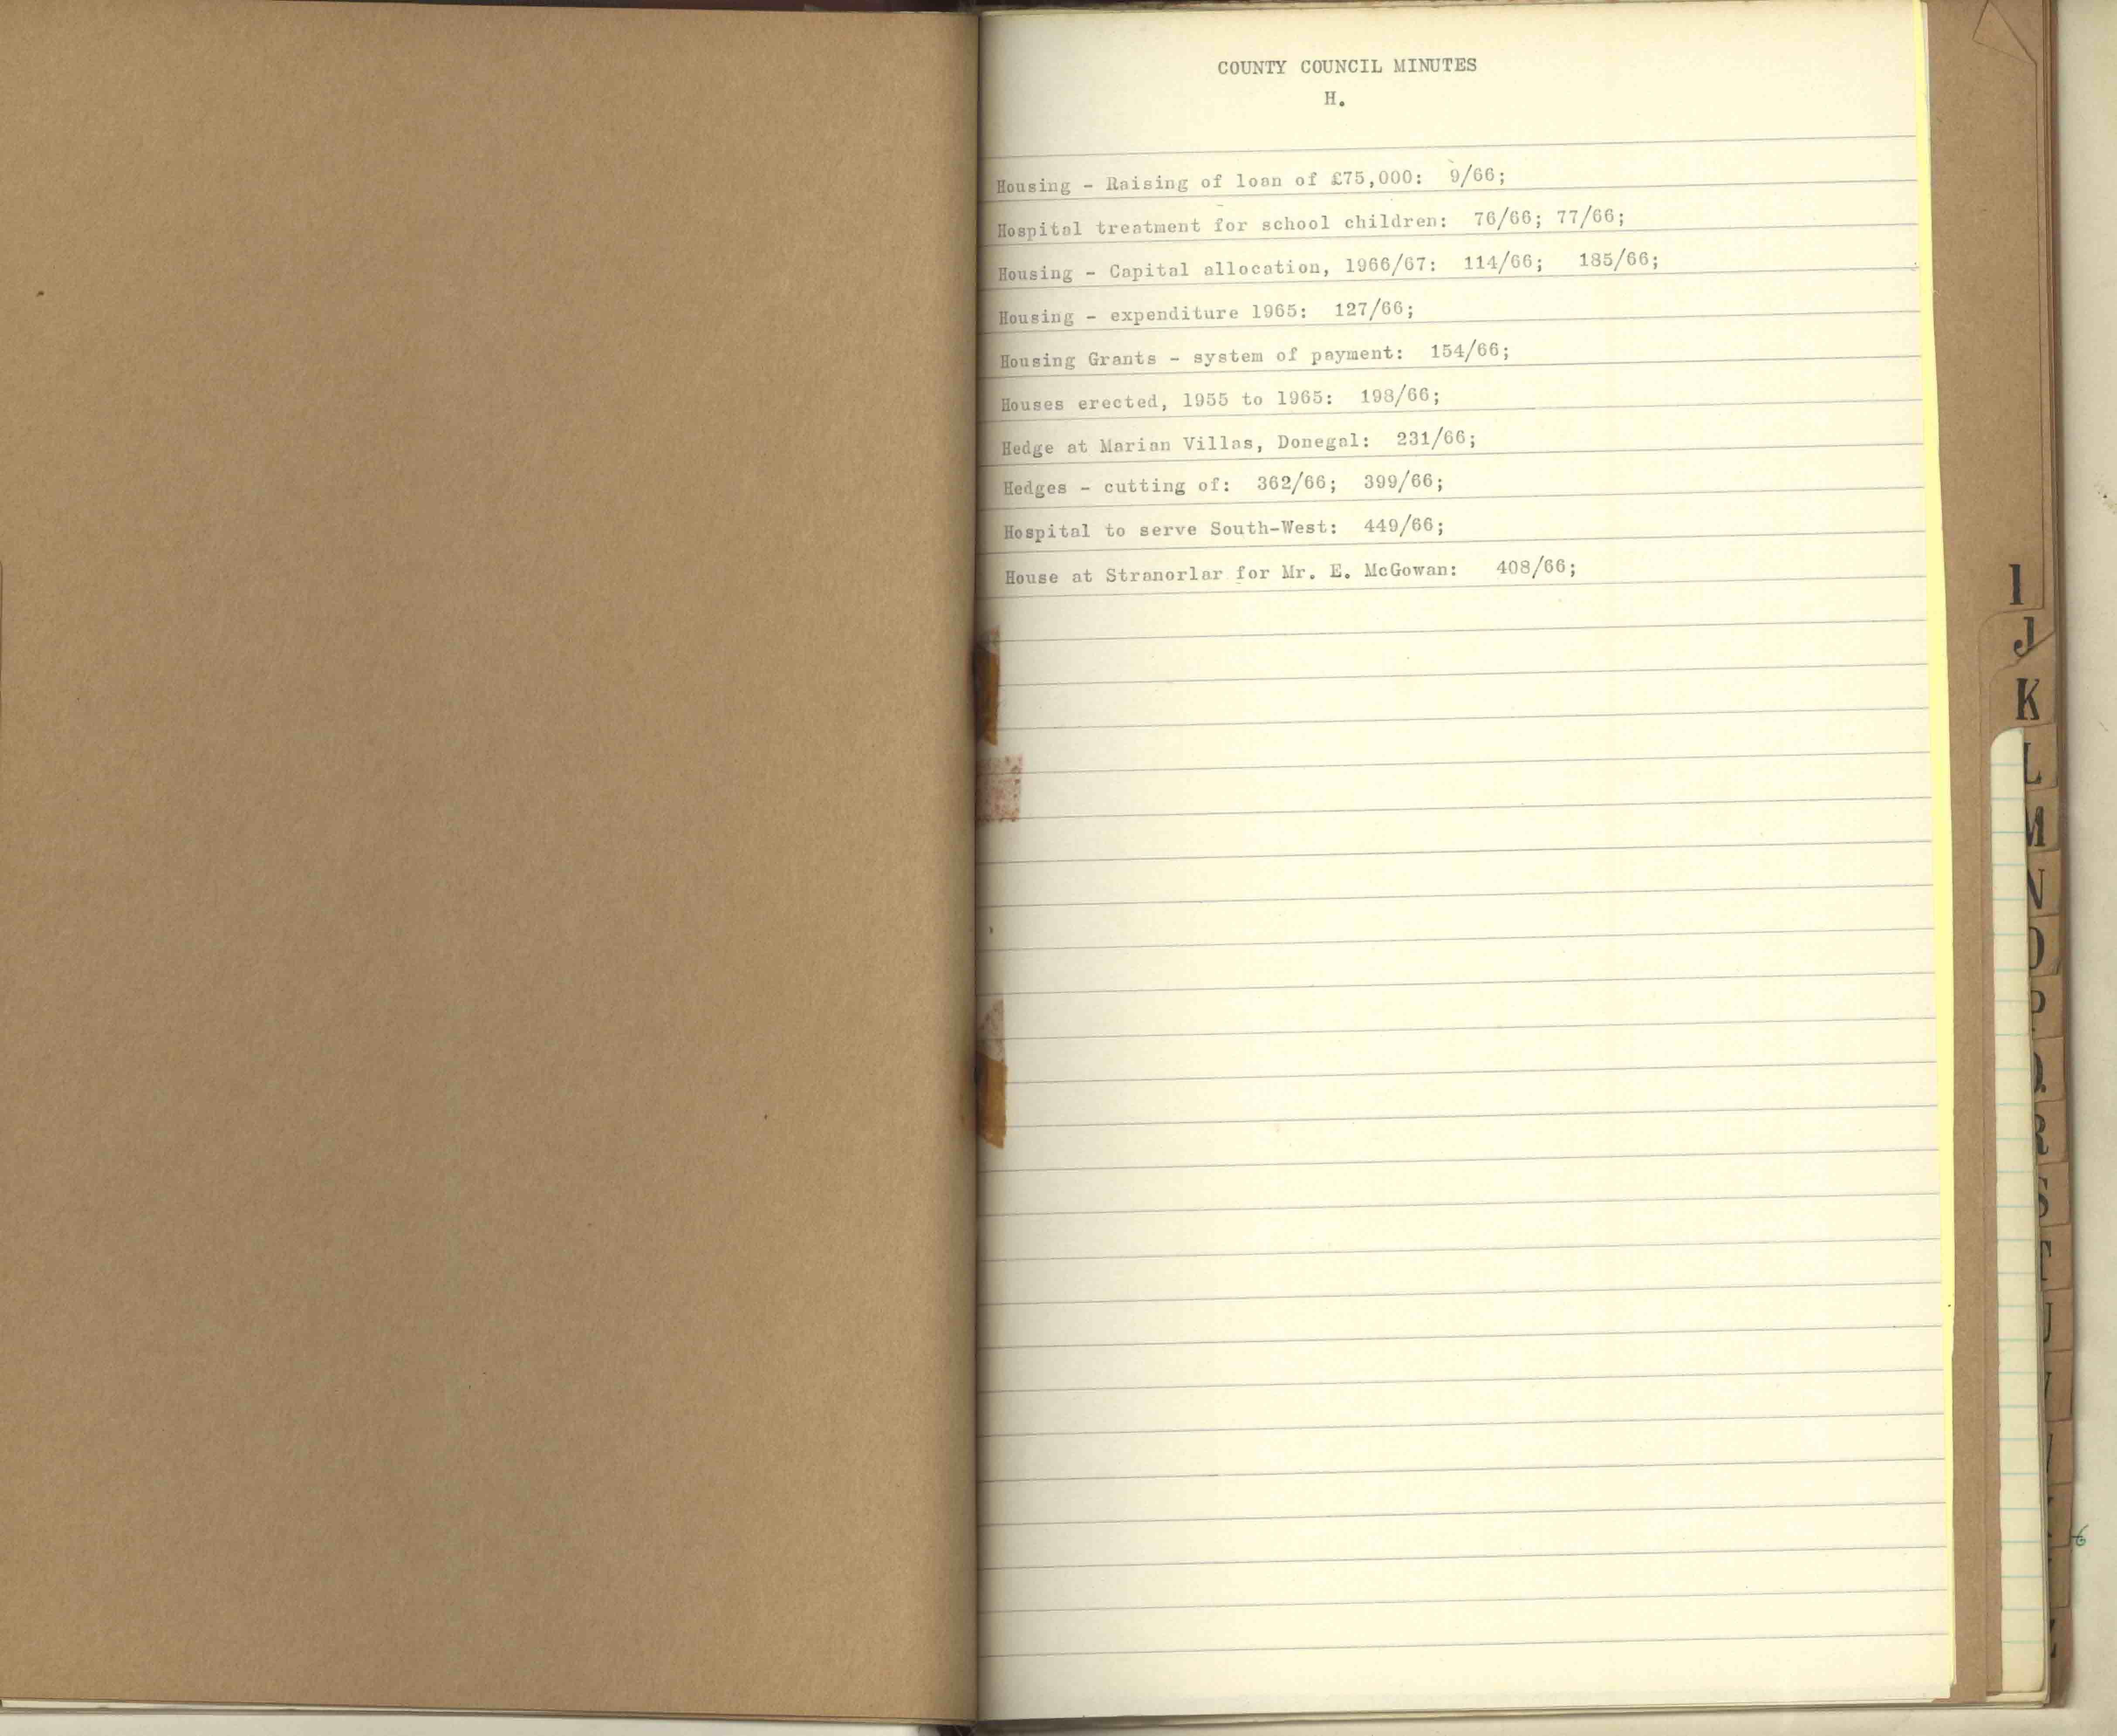 COUNTY COUNCIL MINUTES
H.
Housing - Raising of loan of £75,000: 9/66;
Hospital treatment for school children: 76/66; 77/66;
Housing - Capital allocation, 1966/67: 114/66; 185/66;
Housing - expenditure 1965: 127/66;
Housing Grants - system of payment: 154/66;
Houses erected, 1955 to 1965: 198/66;
Hedge at Marian Villas, Donegal: 231/66;
Hedges - cutting of: 362/66; 399/66;
Hospital to serve South-West: 449/66;
House at Stranorlar for Mr. E. McGowan: 408/66;
I
J
K
L
M
N
O
P
Q
R
S
T
U
V